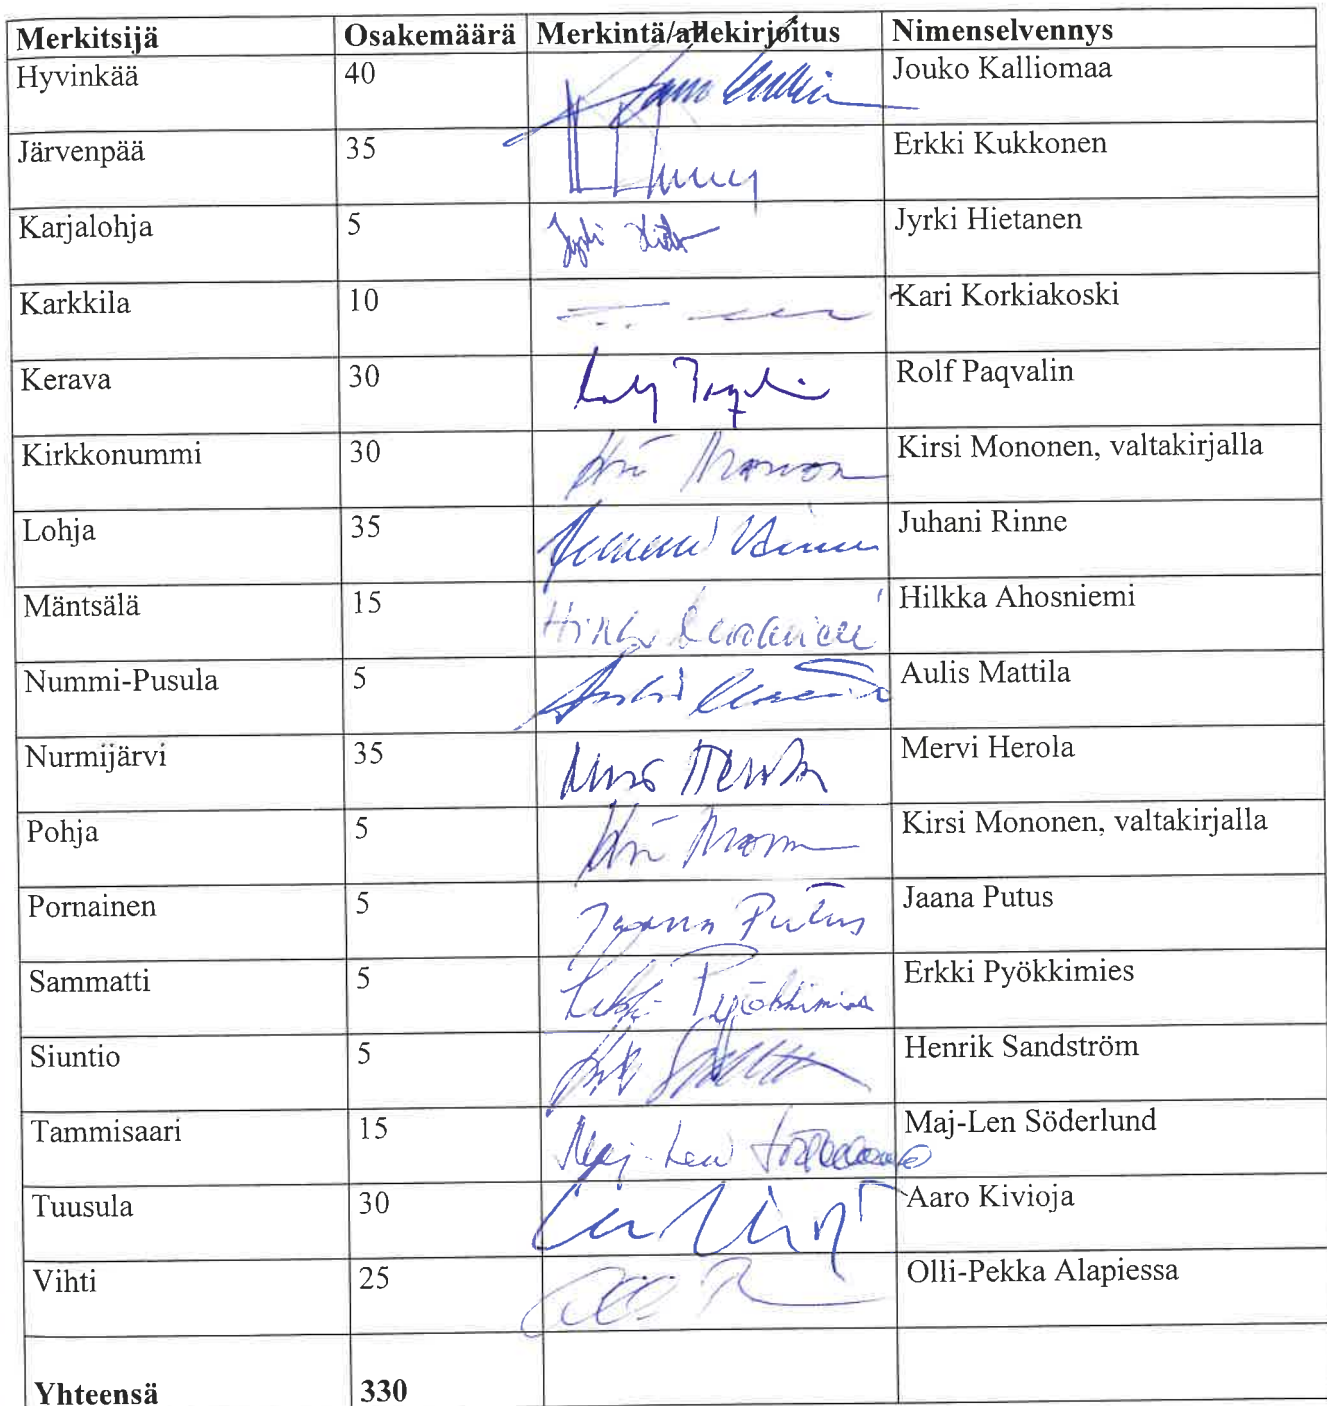 Merkitsijä Osakemäärä Merkintä/allekirjoitus Nimenselvennys
Hyvinkää 40 Jouko Kalliomaa
Järvenpää 35 Erkki Kukkonen
Karjalohja 5 Jyrki Hietanen
Karkkila 10 Kari Korkiakoski
Kerava 30 Rolf Paqvalin
Kirkkonummi 30 Kirsi Mononen, valtakirjalla
Lohja 35 Juhani Rinne
Mäntsälä 15 Hilkka Ahosniemi
Nummi-Pusula 5 Aulis Mattila
Nurmijärvi 35 Mervi Herola
Pohja 5 Kirsi Mononen, valtakirjalla
Pornainen 5 Jaana Putus Jaana Putus
Sammatti 5 Erkki Pyökkimies Erkki Pyökkimies
Siuntio 5 Henrik Sandström
Tammisaari 15 Maj-Len Söderlund Maj-Len Söderlund
Tuusula 30 Aaro Kivioja
Vihti 25 Olli-Pekka Alapiessa
Yhteensä 330